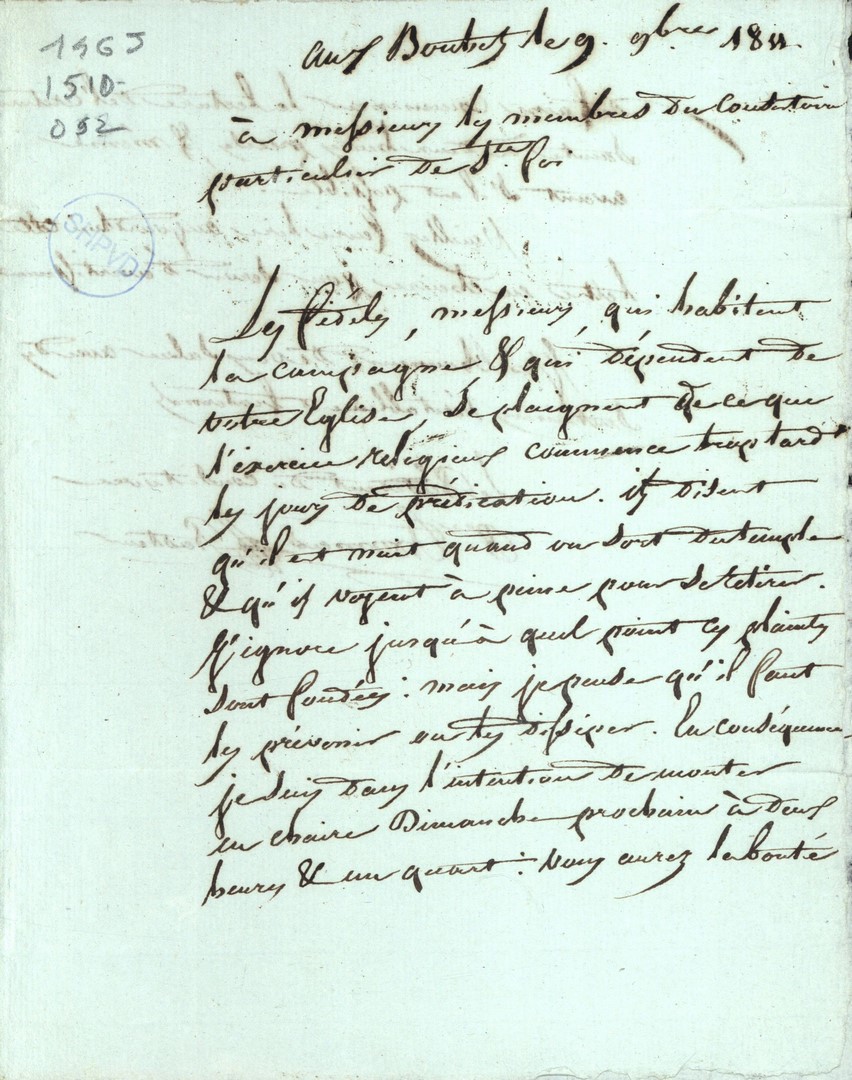 1463
1510-
052
SHPVD
aux Boubets le 9. 9bre 1811.
à messieurs les membres du Consistoire
particulier de Ste foi
Les fidèles, messieurs, qui habitent
la campagne & qui dépendent de
votre Eglise, se plaignent de ce que
l'exercice religieux commence trop tard
les jours de prédication. ils disent
qu'il est nuit quand on sort du temple
& qu'ils voyent à peine pour se retirer.
J'ignore jusqu'à quel point ces plaintes
sont fondées: mais je pense qu'il faut
les prévenir ou les dissiper. En conséquence,
je suis dans l'intention de monter
en chaire Dimanche prochain à deux
heures & un quart: vous aurez la bonté